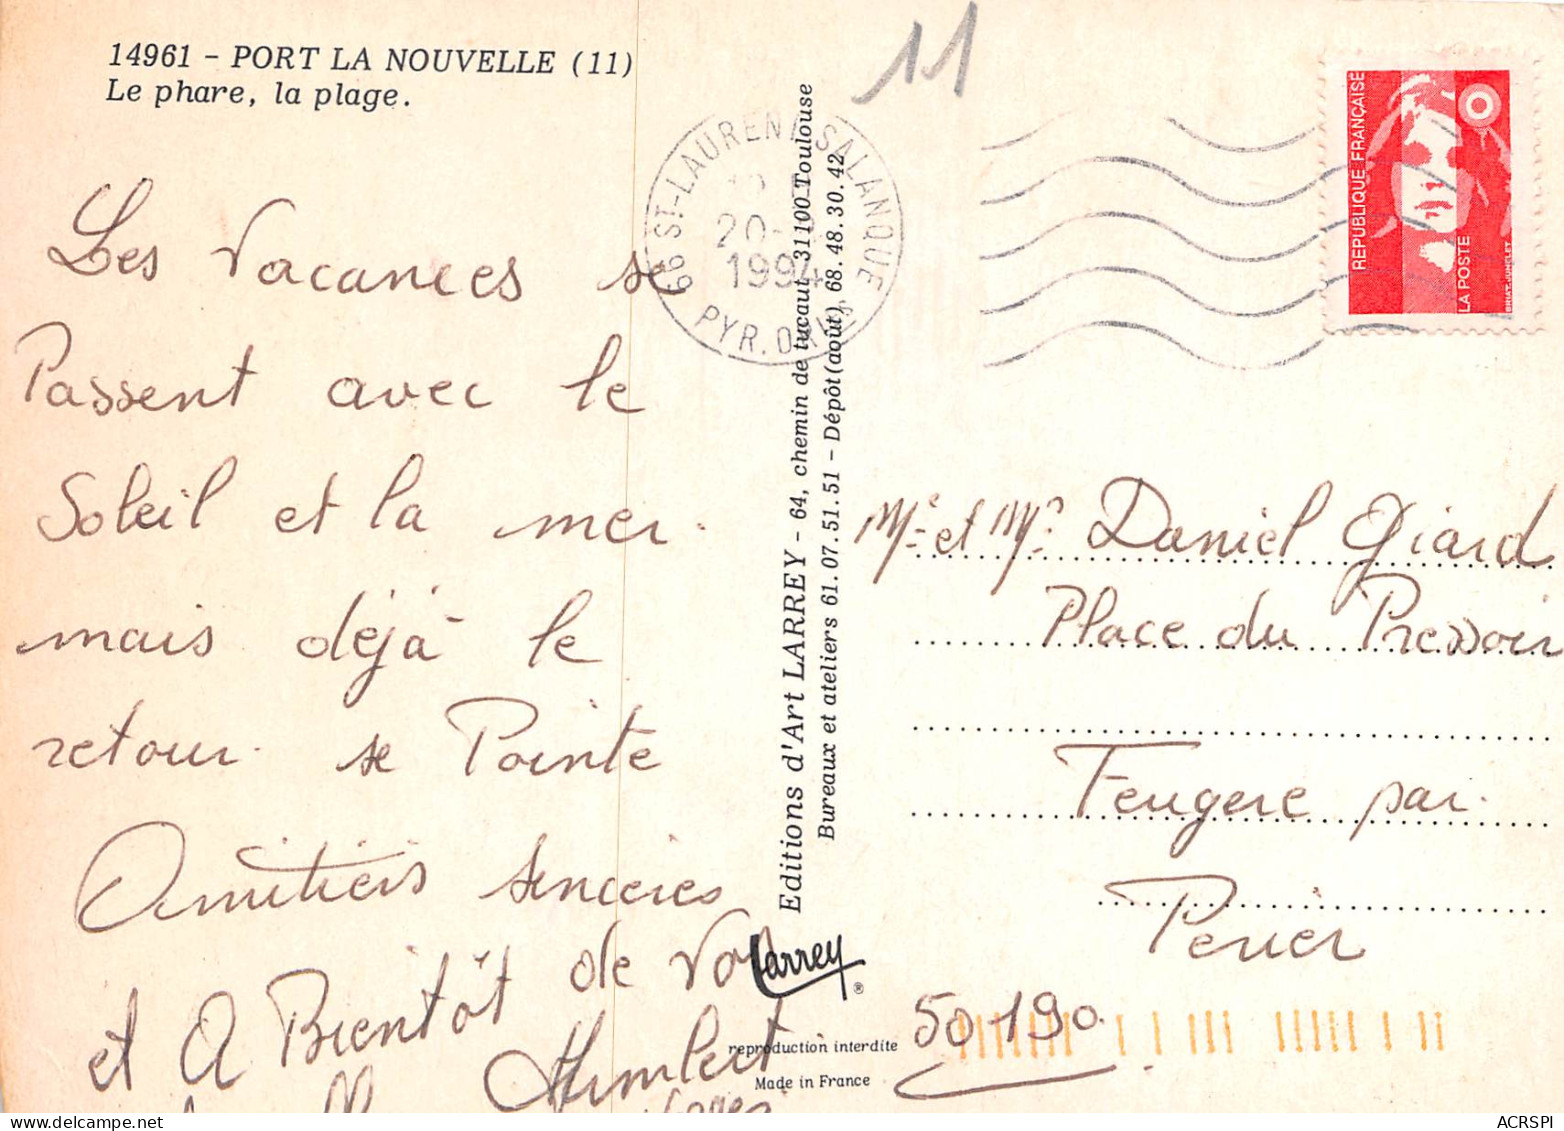 14961 - PORT LA NOUVELLE (11)
Le phare, la plage.
11
Les Vacances se
Passent avec le
Soleil et la mer.
mais déjà le
retour se Pointe
Amitiers sinceres
et A Bientôt de Vo
Humbert
66 ST-LAURENT-SALANQUE
20-
1994
PYR. OR
Editions d'Art LARREY - 64, chemin de tucaut, 31100 Toulouse
Bureaux et ateliers 61.07.51.51 - Dépôt (août) 68.48.30.42
Larrey
®
reproduction interdite
Made in France
REPUBLIQUE FRANÇAISE
LA POSTE
BRIAT-JUMELET
Mr et Me Daniel Giard
Place du Pressoir
Feugere par
Perier
50190
ACRSPI